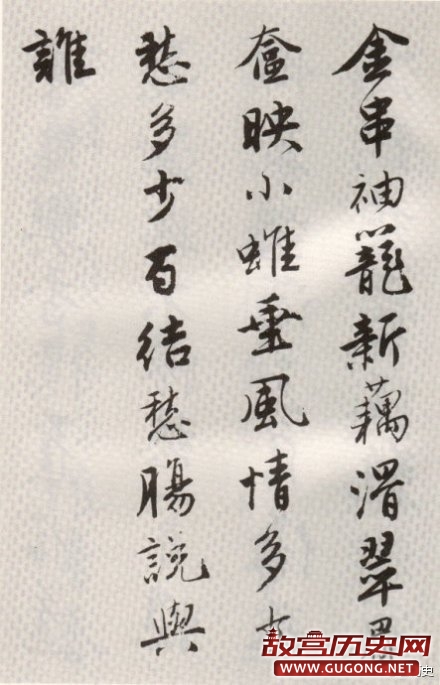 金串袖籠新藕滑翠眉
奩映小蛾垂風情多少
愁多少百結愁腸說與
誰
故宫历史网
WWW.GUGONG.NET
史